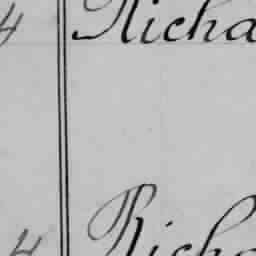 4 Richa
4 Richa